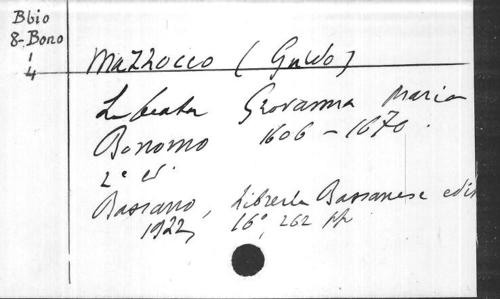 Bbio
8-Bono
1
4
Mazzocco (Guido)
La beata Giovanna Maria
Bonomo 1606 - 1670.
2e ed.
Bassano, Libreria Bassanese edit
1922, 16°, 262 pp